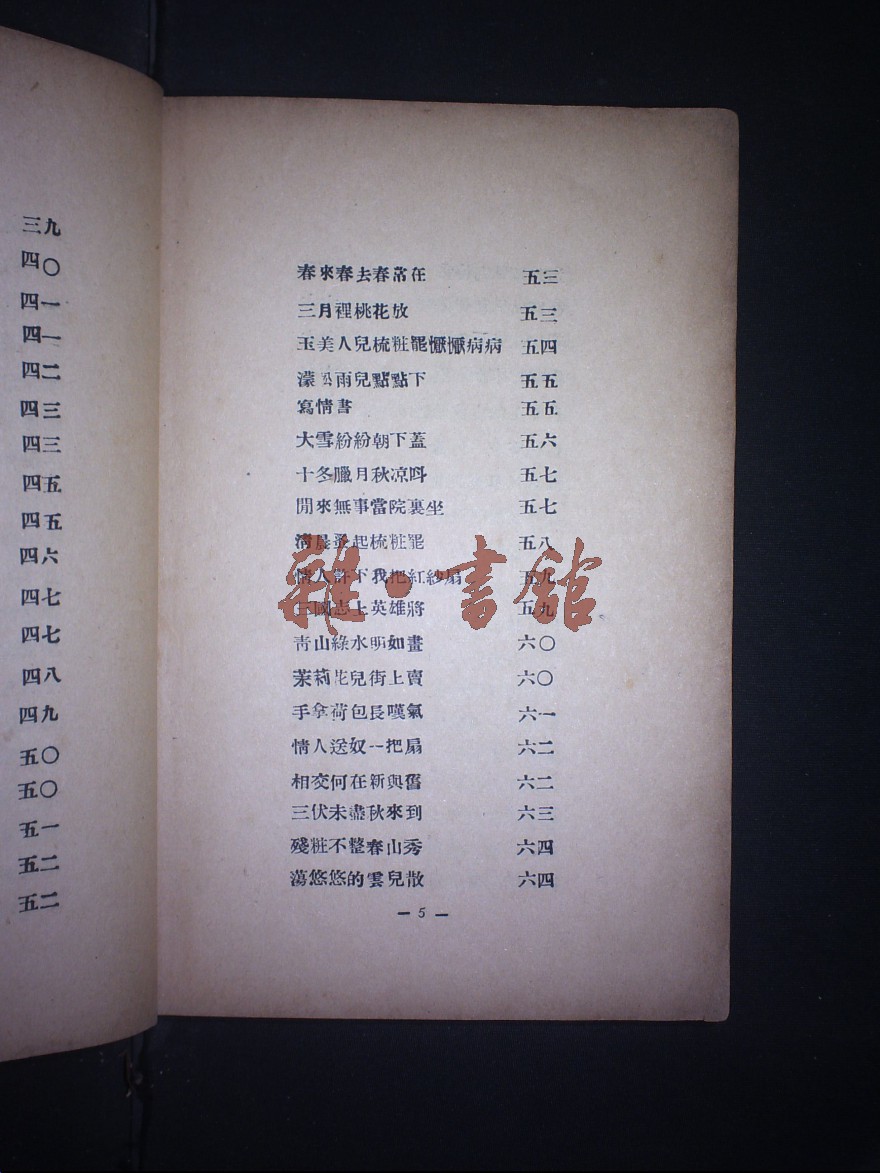 三九
四〇
四一
四一
四二
四三
四三
四五
四五
四六
四七
四七
四八
四九
五〇
五〇
五一
五二
五二
春來春去春常在 五三
三月裡桃花放 五三
玉美人兒梳粧罷懨懨病病 五四
濛松雨兒點點下 五五
寫情書 五五
大雪紛紛朝下蓋 五六
十冬臘月秋凉時 五七
閒來無事當院裏坐 五七
清晨早起梳粧罷 五八
情人許下我把紅紗扇 五九
三國志上英雄將 五九
靑山綠水明如畫 六〇
茉莉花兒街上賣 六〇
手拿荷包長嘆氣 六一
情人送奴一把扇 六二
相交何在新與舊 六二
三伏未盡秋來到 六三
殘粧不整春山秀 六四
蕩悠悠的雲兒散 六四
— 5 —
雜·書館